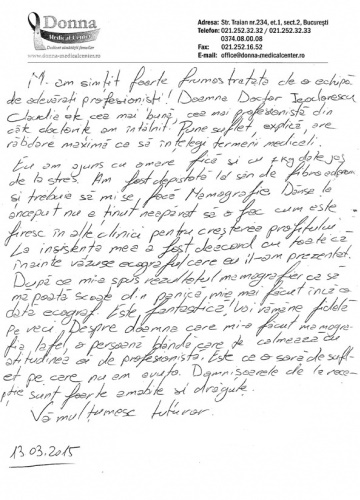 Donna
Medical Center
Dedicat sănătății femeilor
www.donna-medicalcenter.ro
Adresa: Str. Traian nr.234, et.1, sect.2, București
Telefon: 021.252.32.32 / 021.252.32.33
0374.08.00.08
Fax: 021.252.16.52
E-mail: office@donna-medicalcenter.ro
M-am simțit foarte frumos tratată de o echipă
de adevărați profesioniști! Doamna Doctor
Claudia e cea mai bună, cea mai profesionistă din
cât doctorițe am întâlnit. Pune suflet, explică, are
răbdare maximă ca să înțelegi termeni medicali.
Eu am ajuns cu o mare frică și cu
de la stres. Am fost depistată la sân de
și trebuie să mi se facă Mamografie. Dânsa la
început nu a ținut neapărat să o fac cum este
firesc în alte clinici pentru creșterea profitului.
La insistența mea a fost deacord cu toate că
înainte văzuse ecograful care eu il-am prezentat.
După ce mi-a spus rezultatul mamografiei ca să
mă poată scoate din panică, mie mai făcut încă o
dată ecograf. Este fantastică! Voi rămâne fidelă
pe veci! Despre doamna care mi-a făcut mamogra-
fia la fel, o persoană blândă care te calmează cu
atitudinea ei de profesionistă. Este ca o soră de sufl-
et pe care nu am avut-o. Domnișoarele de la rece-
pție sunt foarte amabile și drăguțe.
Vă mulțumesc tuturor.
13.03.2015